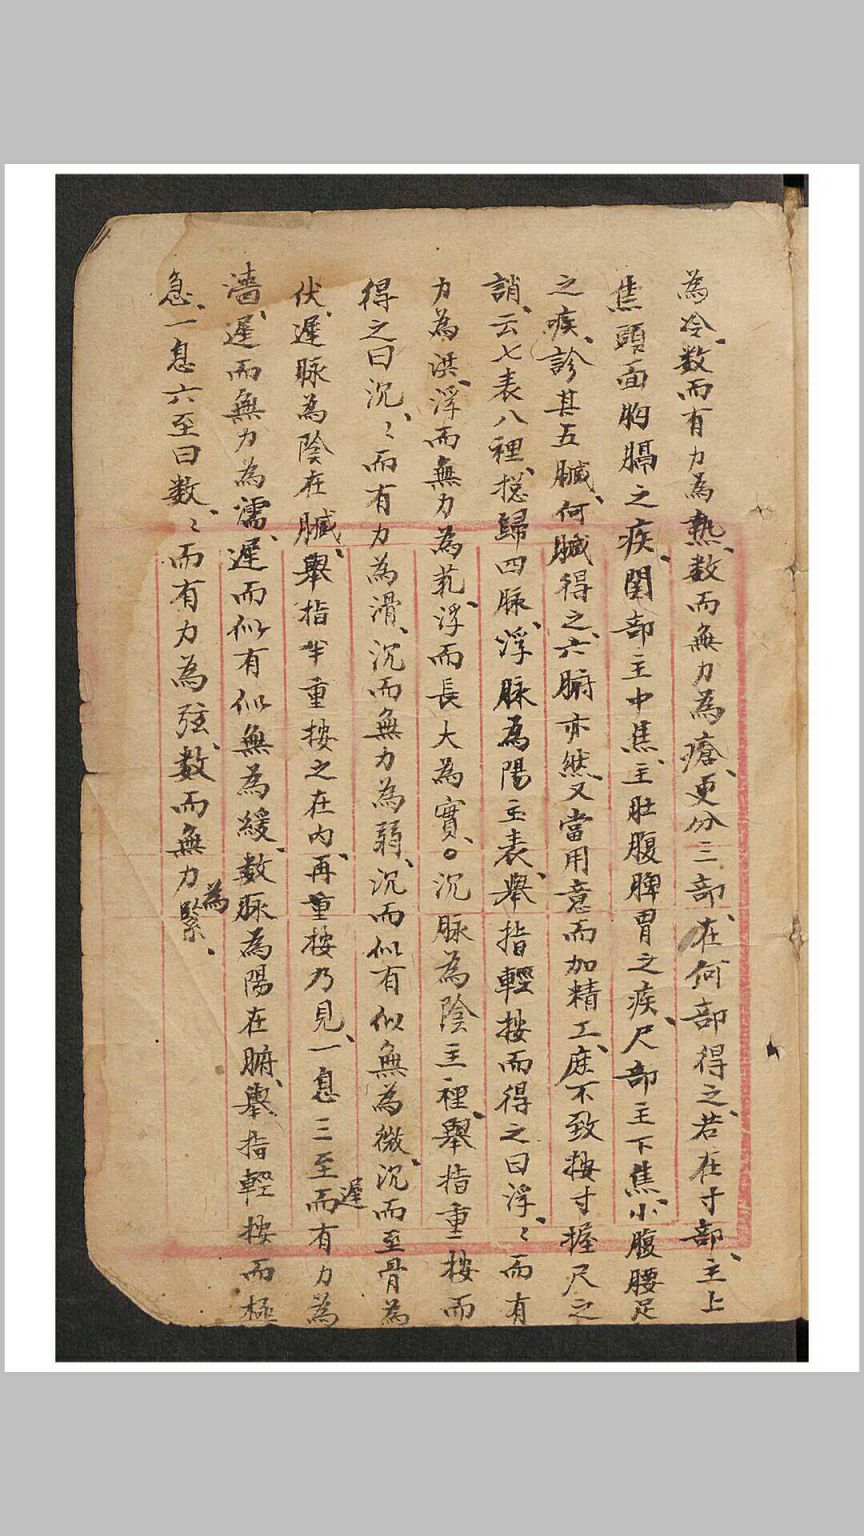 為冷、数而有力為熱、数而無力為瘡、更分三部、在何部得之、若在寸部、主上
焦頭面胸膈之疾、関部主中焦、主肚腹脾胃之疾、尺部主下焦、小腹腰足
之疾、診其五臓、何臓得之、六腑亦然、又當用意而加精工、庶不致按寸握尺之
誚、云七表八裡、揔歸四脉、浮脉為陽主表、舉指輕按而得之曰浮、〻而有
力為洪、浮而無力為芤、浮而長大為實、○沉脉為陰主裡、舉指重按而
得之曰沉、〻而有力為滑、沉而無力為弱、沉而似有似無為微、沉而至骨為
伏、遲脉為陰在臓、舉指半重按之在内、再重按乃見、一息三至遲而有力為
濇、遲而無力為濡、遲而似有似無為緩、数脉為陽在腑、舉指輕按而極
急、一息六至曰数、〻而有力為弦、数而無力為緊、